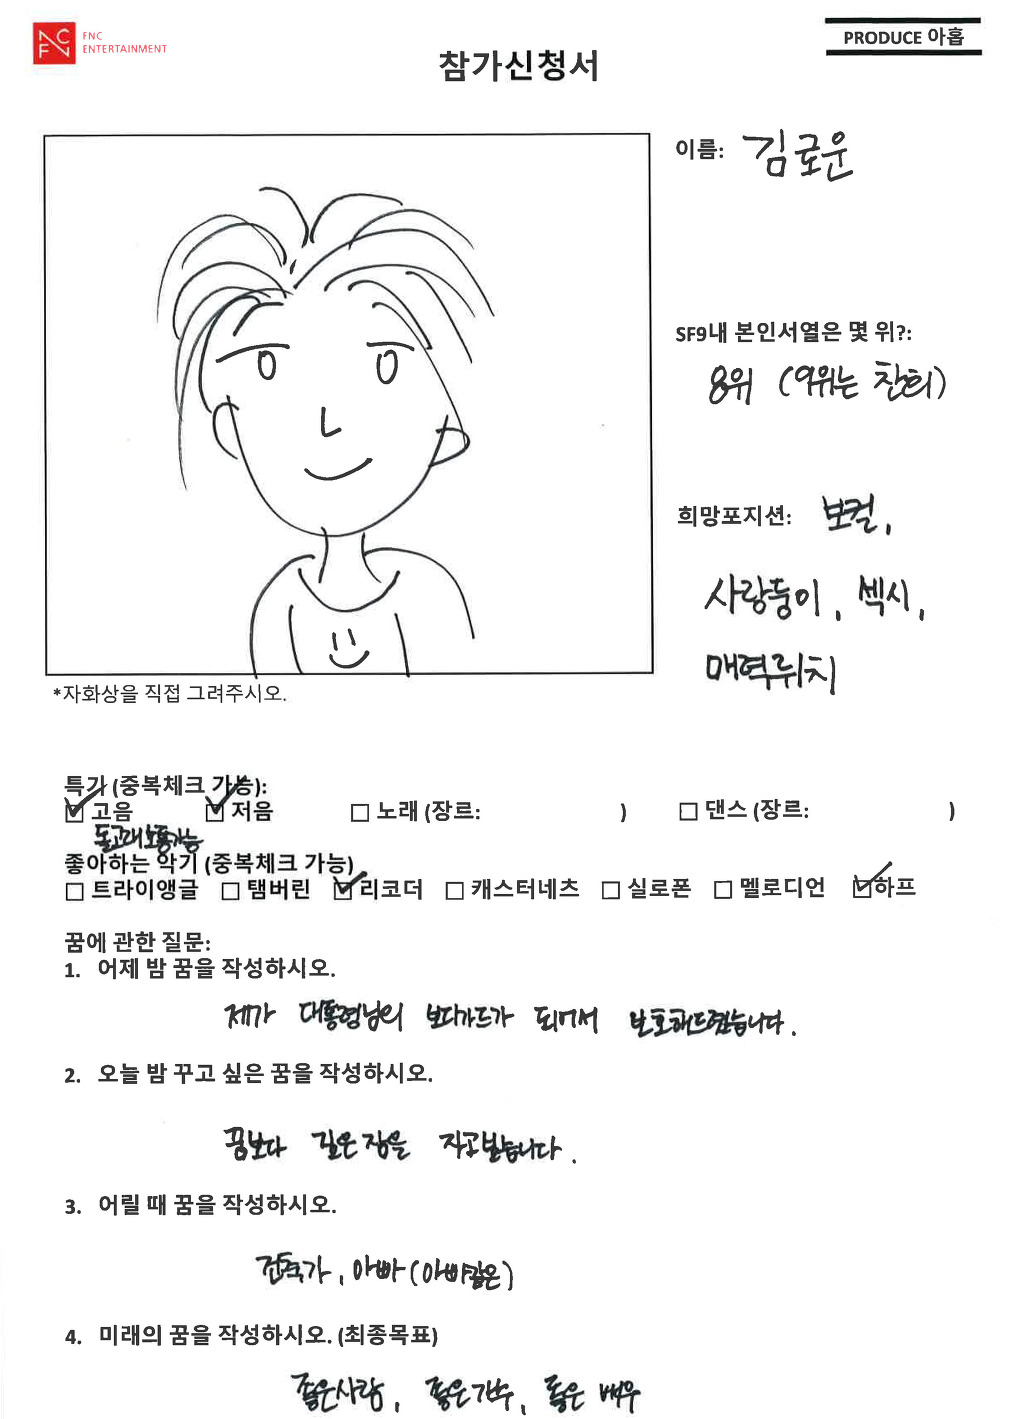 FNC
ENTERTAINMENT
PRODUCE 아홉
참가신청서
이름: 김로운
SF9내 본인서열은 몇 위?:
8위 (9위는 찬희)
희망포지션: 보컬,
사랑둥이, 섹시,
매력뤼치
*자화상을 직접 그려주시오.
특가 (중복체크 가능):
☑ 고음 ☑ 저음 ☐ 노래 (장르: ) ☐ 댄스 (장르: )
돌고래소통가능
좋아하는 악기 (중복체크 가능)
☐ 트라이앵글 ☐ 탬버린 ☑ 리코더 ☐ 캐스터네츠 ☐ 실로폰 ☐ 멜로디언 ☑ 하프
꿈에 관한 질문:
1. 어제 밤 꿈을 작성하시오.
제가 대통령님의 보디가드가 되어서 보호해드렸습니다.
2. 오늘 밤 꾸고 싶은 꿈을 작성하시오.
꿈보다 깊은 잠을 자고싶습니다.
3. 어릴 때 꿈을 작성하시오.
건축가, 아빠 (아빠같은)
4. 미래의 꿈을 작성하시오. (최종목표)
좋은사람, 좋은가수, 좋은 배우